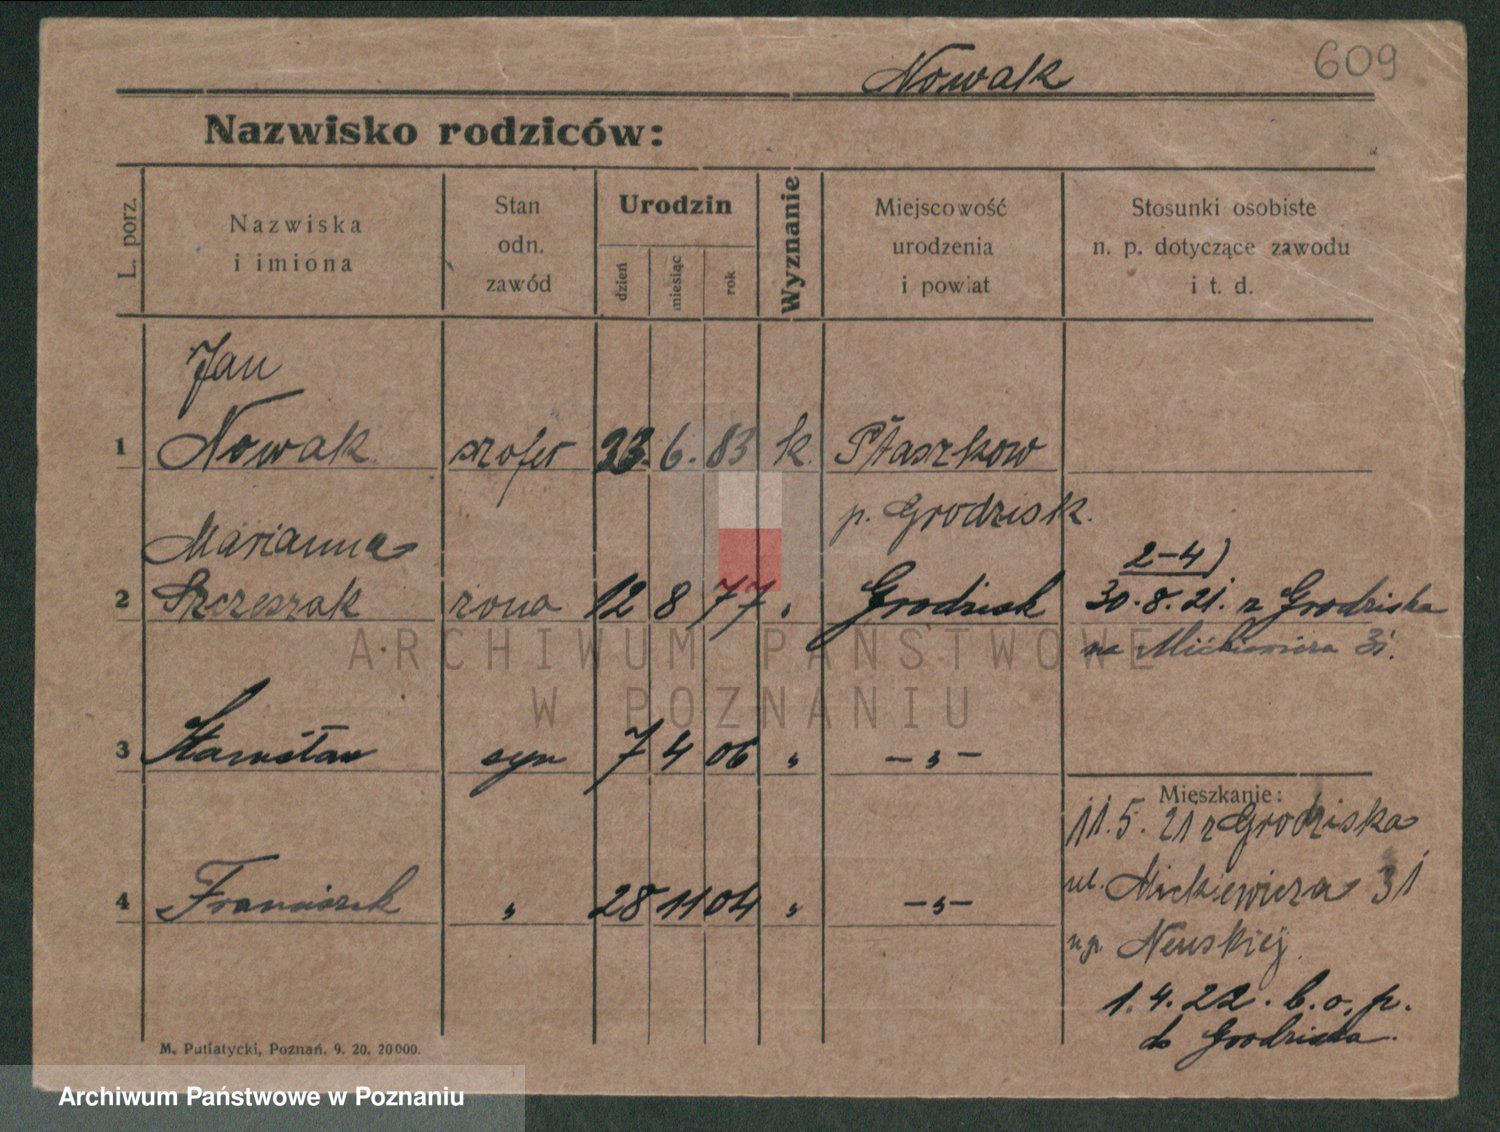 Nowak
609
Nazwisko rodziców:
L. porz.
Nazwiska
i imiona
Stan
odn.
zawód
Urodzin
dzień
miesiąc
rok
Wyznanie
Miejscowość
urodzenia
i powiat
Stosunki osobiste
n. p. dotyczące zawodu
i t. d.
Jan
1 Nowak szofer 23. 6. 83 k. Ptaszkow
p. Grodzisk.
Marianna
2 Szczeszak zona 12 8 77 " Grodzisk
2-4)
30.8.21. z Grodziska
na Mickiewicza 31.
ARCHIWUM PAŃSTWOWE
W POZNANIU
3 Stanisław syn 7 4 06 " – " –
4 Franciszek " 28 11 04 " – " –
Mieszkanie:
11.5.21 z Grodziska
ul. Mickiewicza 31
up. Neuskiej
1.4.22. b.o.p.
do Grodziska.
M. Putiatycki, Poznań. 9. 20. 20000.
Archiwum Państwowe w Poznaniu